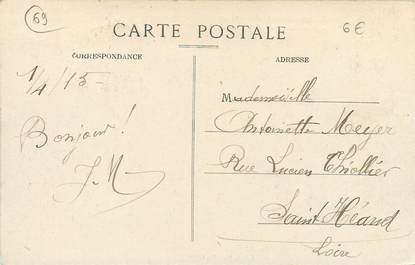 69
6€
CARTE POSTALE
CORRESPONDANCE
ADRESSE
1/4/15-
Bonjour!
J.M
Mademoiselle
Antoinette Meyer
Rue Lucien Thiollier
Saint Héand
Loire